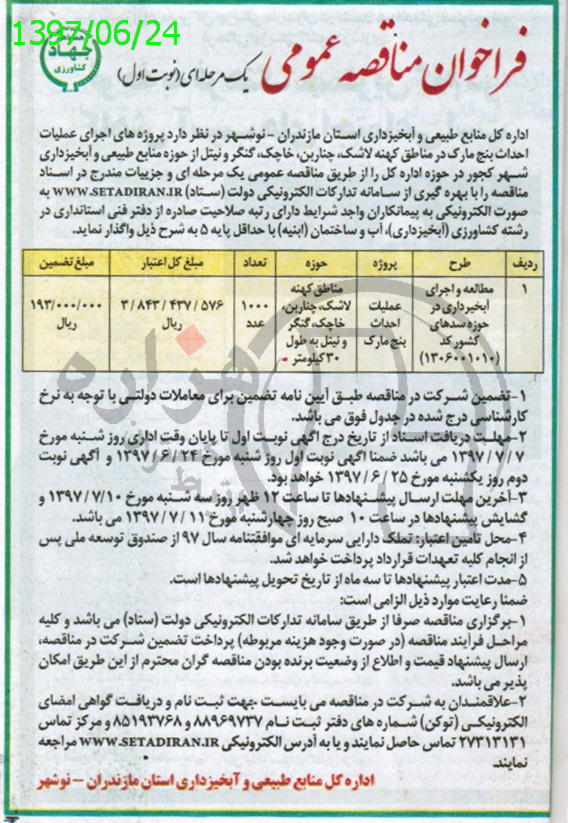 1397/06/24
جهاد
کشاورزی
فراخوان مناقصه عمومی یک مرحله ای (نوبت اول)
اداره کل منابع طبیعی و آبخیزداری استان مازندران - نوشهر در نظر دارد پروژه های اجرای عملیات
احداث بنچ مارک در مناطق کهنه لاشک، چناربن، خاچک، گنگر و نیتل از حوزه منابع طبیعی و آبخیزداری
شهر کجور در حوزه اداره کل را از طریق مناقصه عمومی یک مرحله ای و جزییات مندرج در اسناد
مناقصه را با بهره گیری از سامانه تدارکات الکترونیکی دولت (ستاد) WWW.SETADIRAN.IR به
صورت الکترونیکی به پیمانکاران واجد شرایط دارای رتبه صلاحیت صادره از دفتر فنی استانداری در
رشته کشاورزی (آبخیزداری)، آب و ساختمان (ابنیه) با حداقل پایه ۵ به شرح ذیل واگذار نماید.
ردیف طرح پروژه حوزه تعداد مبلغ کل اعتبار مبلغ تضمین
۱ مطالعه و اجرای آبخیزداری در حوزه سدهای کشور کد (۱۳۰۶۰۰۱۰۱۰) عملیات احداث بنچ مارک مناطق کهنه لاشک، چناربن، خاچک، گنگر و نیتل به طول ۳۰ کیلومتر ۱۰۰۰ عدد ۳/۸۴۳/۴۳۷/۵۷۶ ریال ۱۹۳/۰۰۰/۰۰۰ ریال
هزاره
۱-تضمین شرکت در مناقصه طبق آیین نامه تضمین برای معاملات دولتی با توجه به نرخ
کارشناسی درج شده در جدول فوق می باشد.
۲-مهلت دریافت اسناد از تاریخ درج آگهی نوبت اول تا پایان وقت اداری روز شنبه مورخ
۱۳۹۷/۷/۷ می باشد ضمنا اگهی نوبت اول روز شنبه مورخ ۱۳۹۷/۶/۲۴ و آگهی نوبت
دوم روز یکشنبه مورخ ۱۳۹۷/۶/۲۵ خواهد بود.
۳-آخرین مهلت ارسال پیشنهادها تا ساعت ۱۲ ظهر روز سه شنبه مورخ ۱۳۹۷/۷/۱۰ و
گشایش پیشنهادها در ساعت ۱۰ صبح روز چهارشنبه مورخ ۱۳۹۷/۷/۱۱ می باشد.
۴-محل تأمین اعتبار: تملک دارایی سرمایه ای موافقتنامه سال ۹۷ از صندوق توسعه ملی پس
از انجام کلیه تعهدات قرارداد پرداخت خواهد شد.
۵-مدت اعتبار پیشنهادها تا سه ماه از تاریخ تحویل پیشنهادها است.
ضمنا رعایت موارد ذیل الزامی است:
۱-برگزاری مناقصه صرفا از طریق سامانه تدارکات الکترونیکی دولت (ستاد) می باشد و کلیه
مراحل فرآیند مناقصه (در صورت وجود هزینه مربوطه) پرداخت تضمین شرکت در مناقصه،
ارسال پیشنهاد قیمت و اطلاع از وضعیت برنده بودن مناقصه گران محترم از این طریق امکان
پذیر می باشد.
۲-علاقمندان به شرکت در مناقصه می بایست جهت ثبت نام و دریافت گواهی امضای
الکترونیکی (توکن) شماره های دفتر ثبت نام ۸۸۹۶۹۷۳۷ و ۸۵۱۹۳۷۶۸ و مرکز تماس
۲۷۳۱۳۱۳۱ تماس حاصل نمایند و یا به آدرس الکترونیکی WWW.SETADIRAN.IR مراجعه
نمایند.
اداره کل منابع طبیعی و آبخیزداری استان مازندران - نوشهر